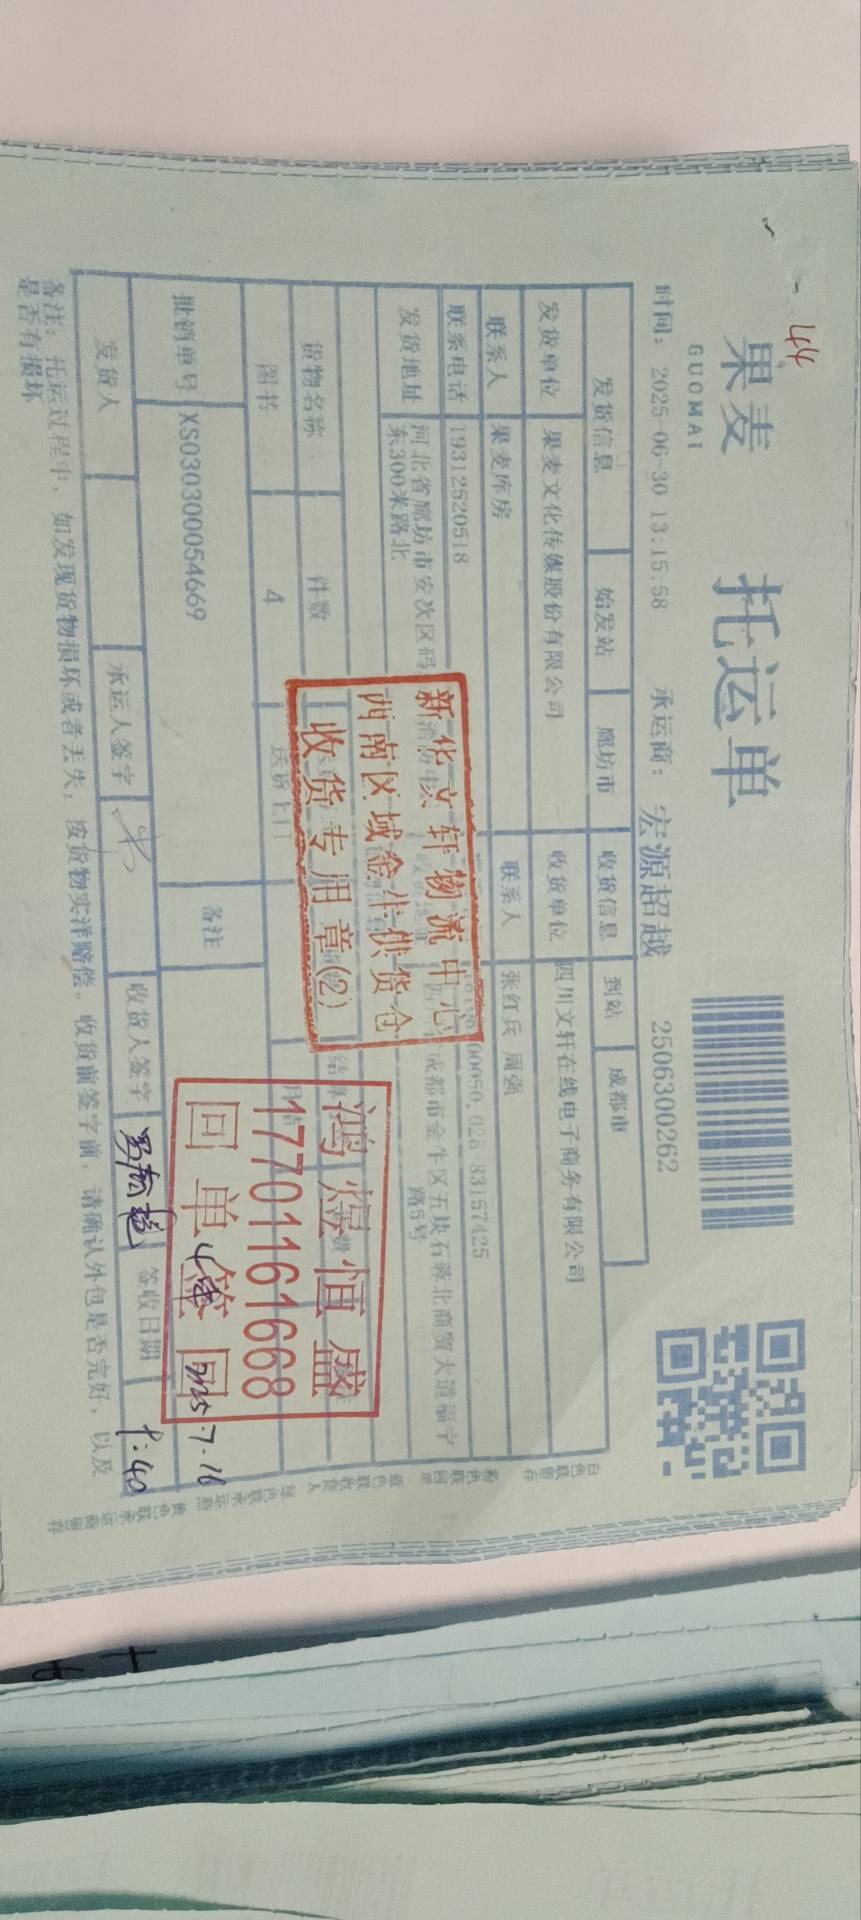 44
果麦
GUOMAI
托运单
时间: 2025-06-30 13:15:58 承运商: 宏源超越 2506300262
发货信息 始发站 廊坊市 收货信息 到站 成都市
发货单位 果麦文化传媒股份有限公司 收货单位 四川文轩在线电子商务有限公司
联系人 果麦库房 联系人 张红兵 周强
联系电话 19312520518 00050,028-83157425
发货地址 河北省廊坊市安次区码 成都市金牛区五块石蓉北商贸大道福宇
东300米路北 路5号
货物名称 件数
图书 4 送货上门 月结
批销单号 XS030300054669 备注
发货人 承运人签字 收货人签字 签收日期
新华文轩物流中心
西南区域金牛供货仓
收货专用章(2)
鸿煜恒盛
17701161668
回单签回
4件
2025.7.16
9:40
备注: 托运过程中, 如发现货物损坏或者丢失, 按货物实洋赔偿。收货前签字前, 请确认外包是否完好, 以及
是否有损坏
白色联留存 粉色联回单 蓝色联收货人 绿色联承运商 黄色联承运商留存